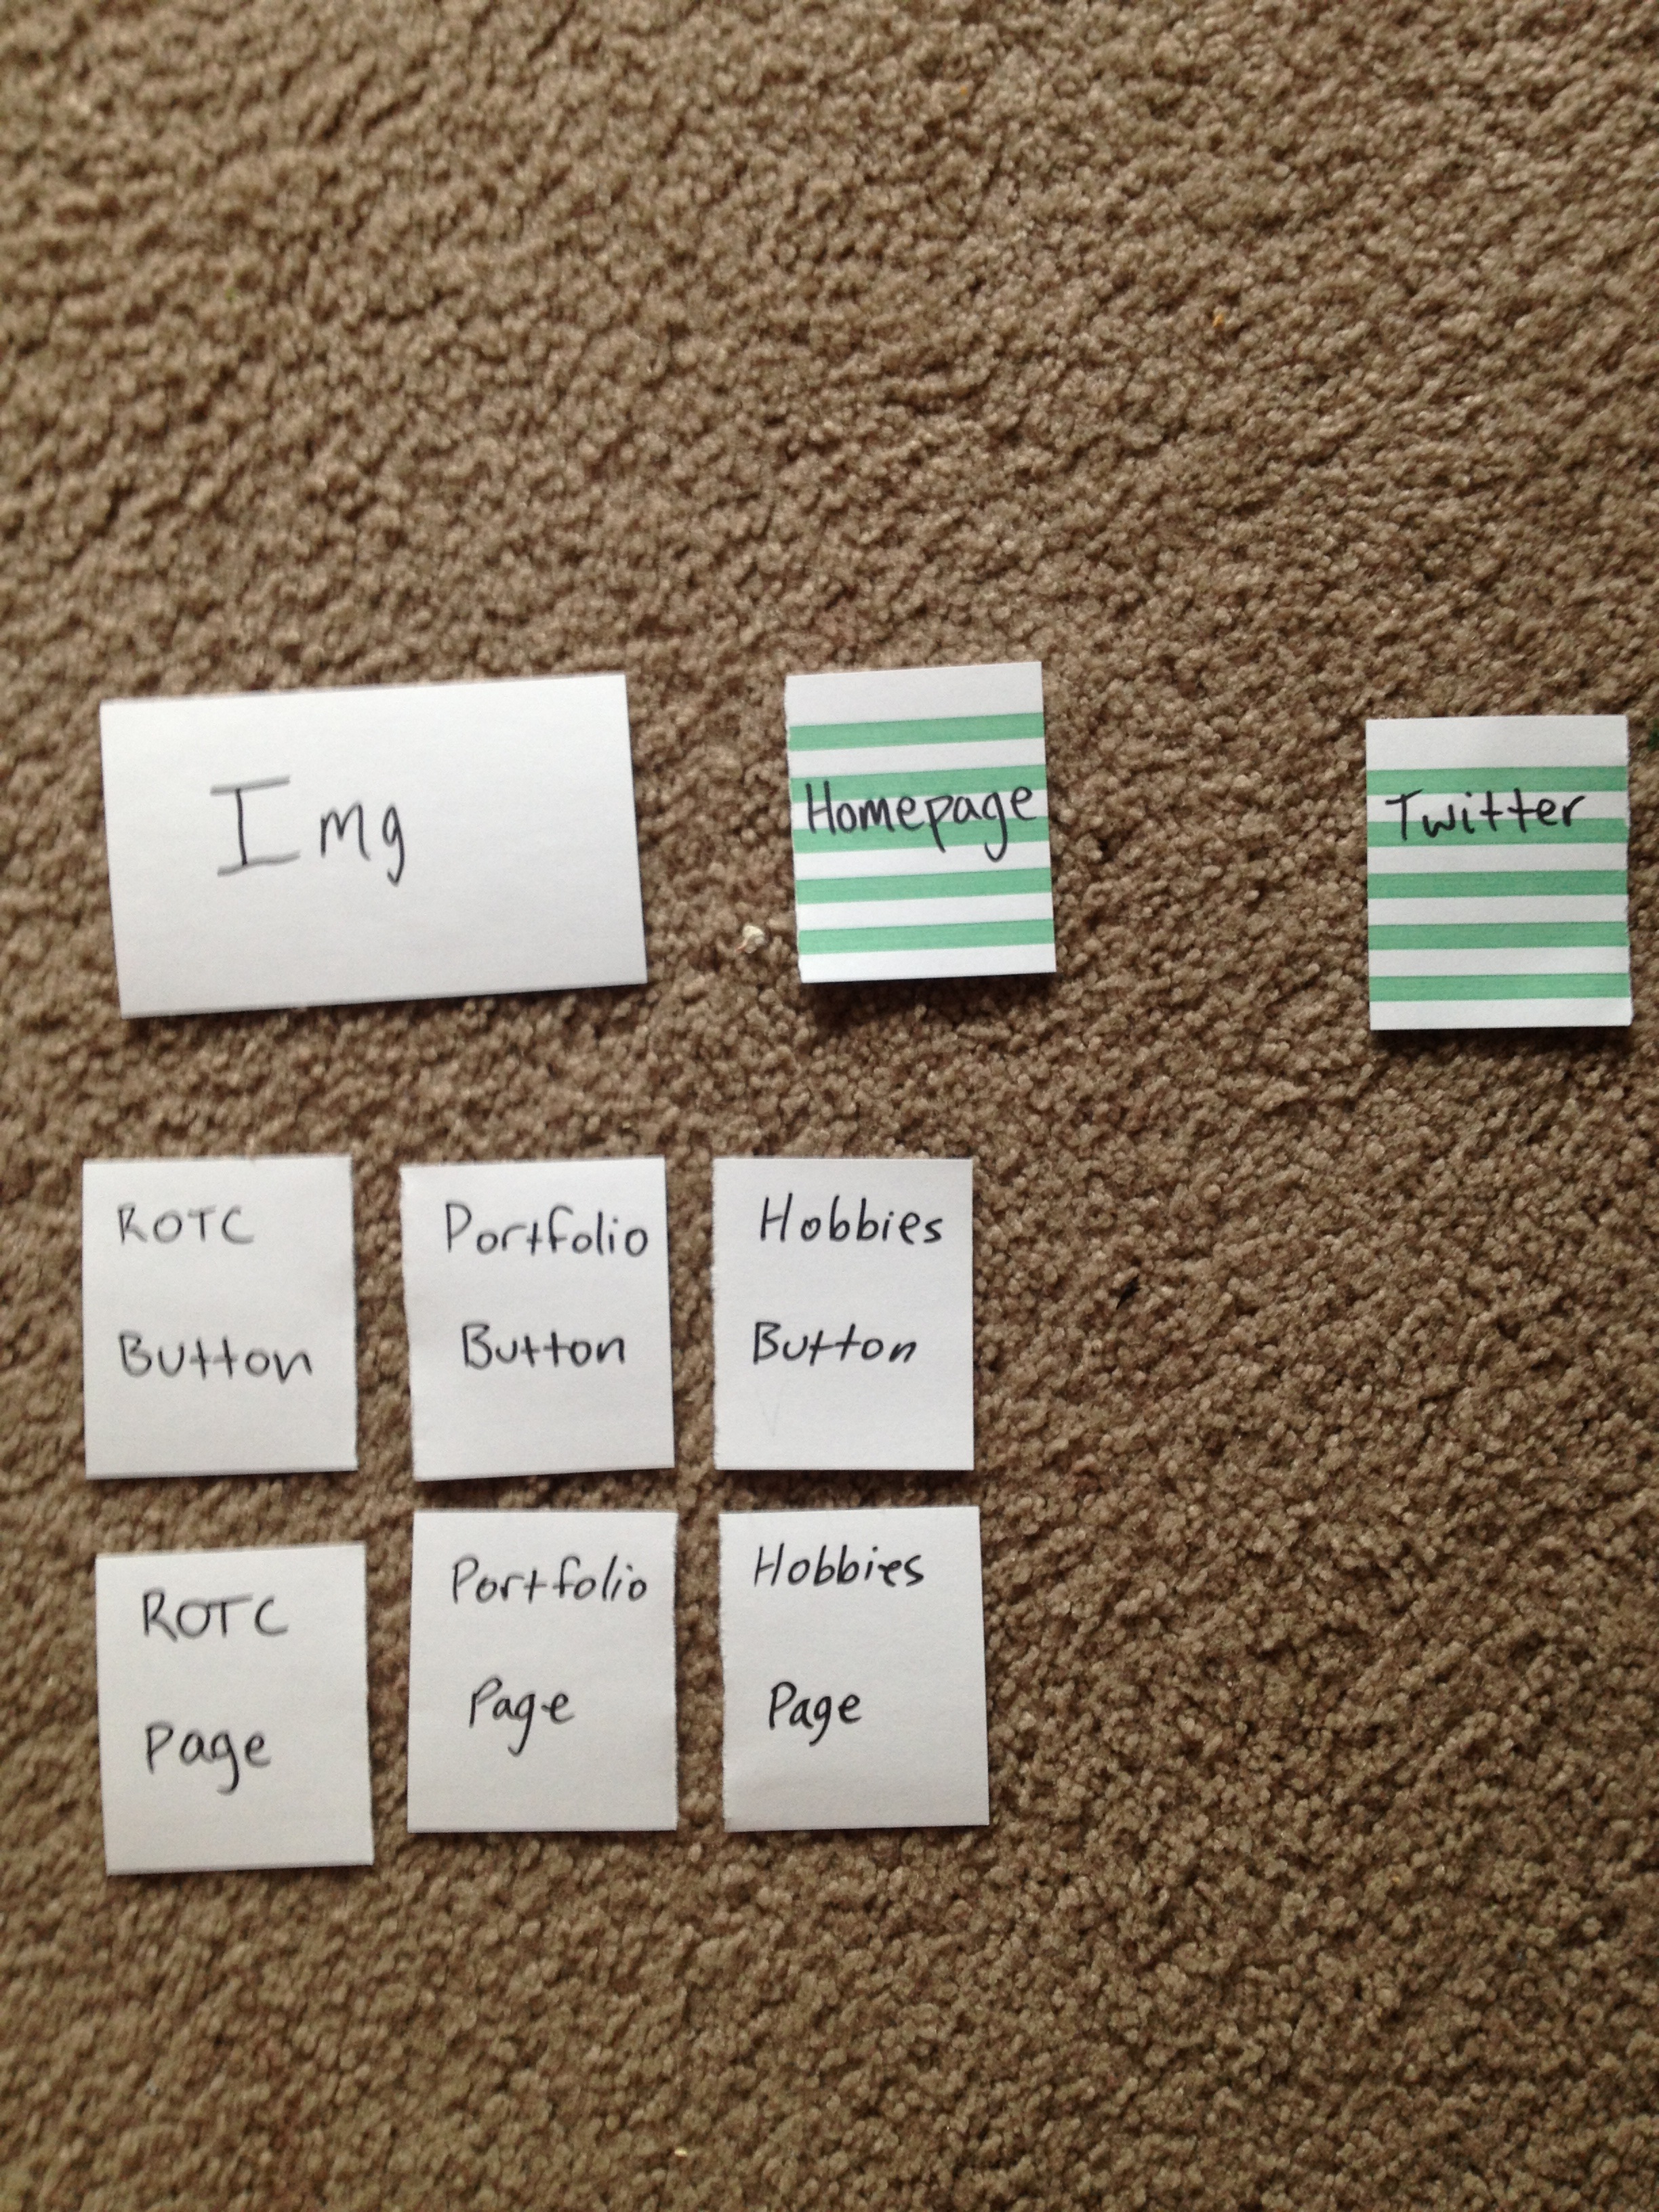 Img
Homepage
Twitter
ROTC
Button
Portfolio
Button
Hobbies
Button
ROTC
Page
Portfolio
Page
Hobbies
Page